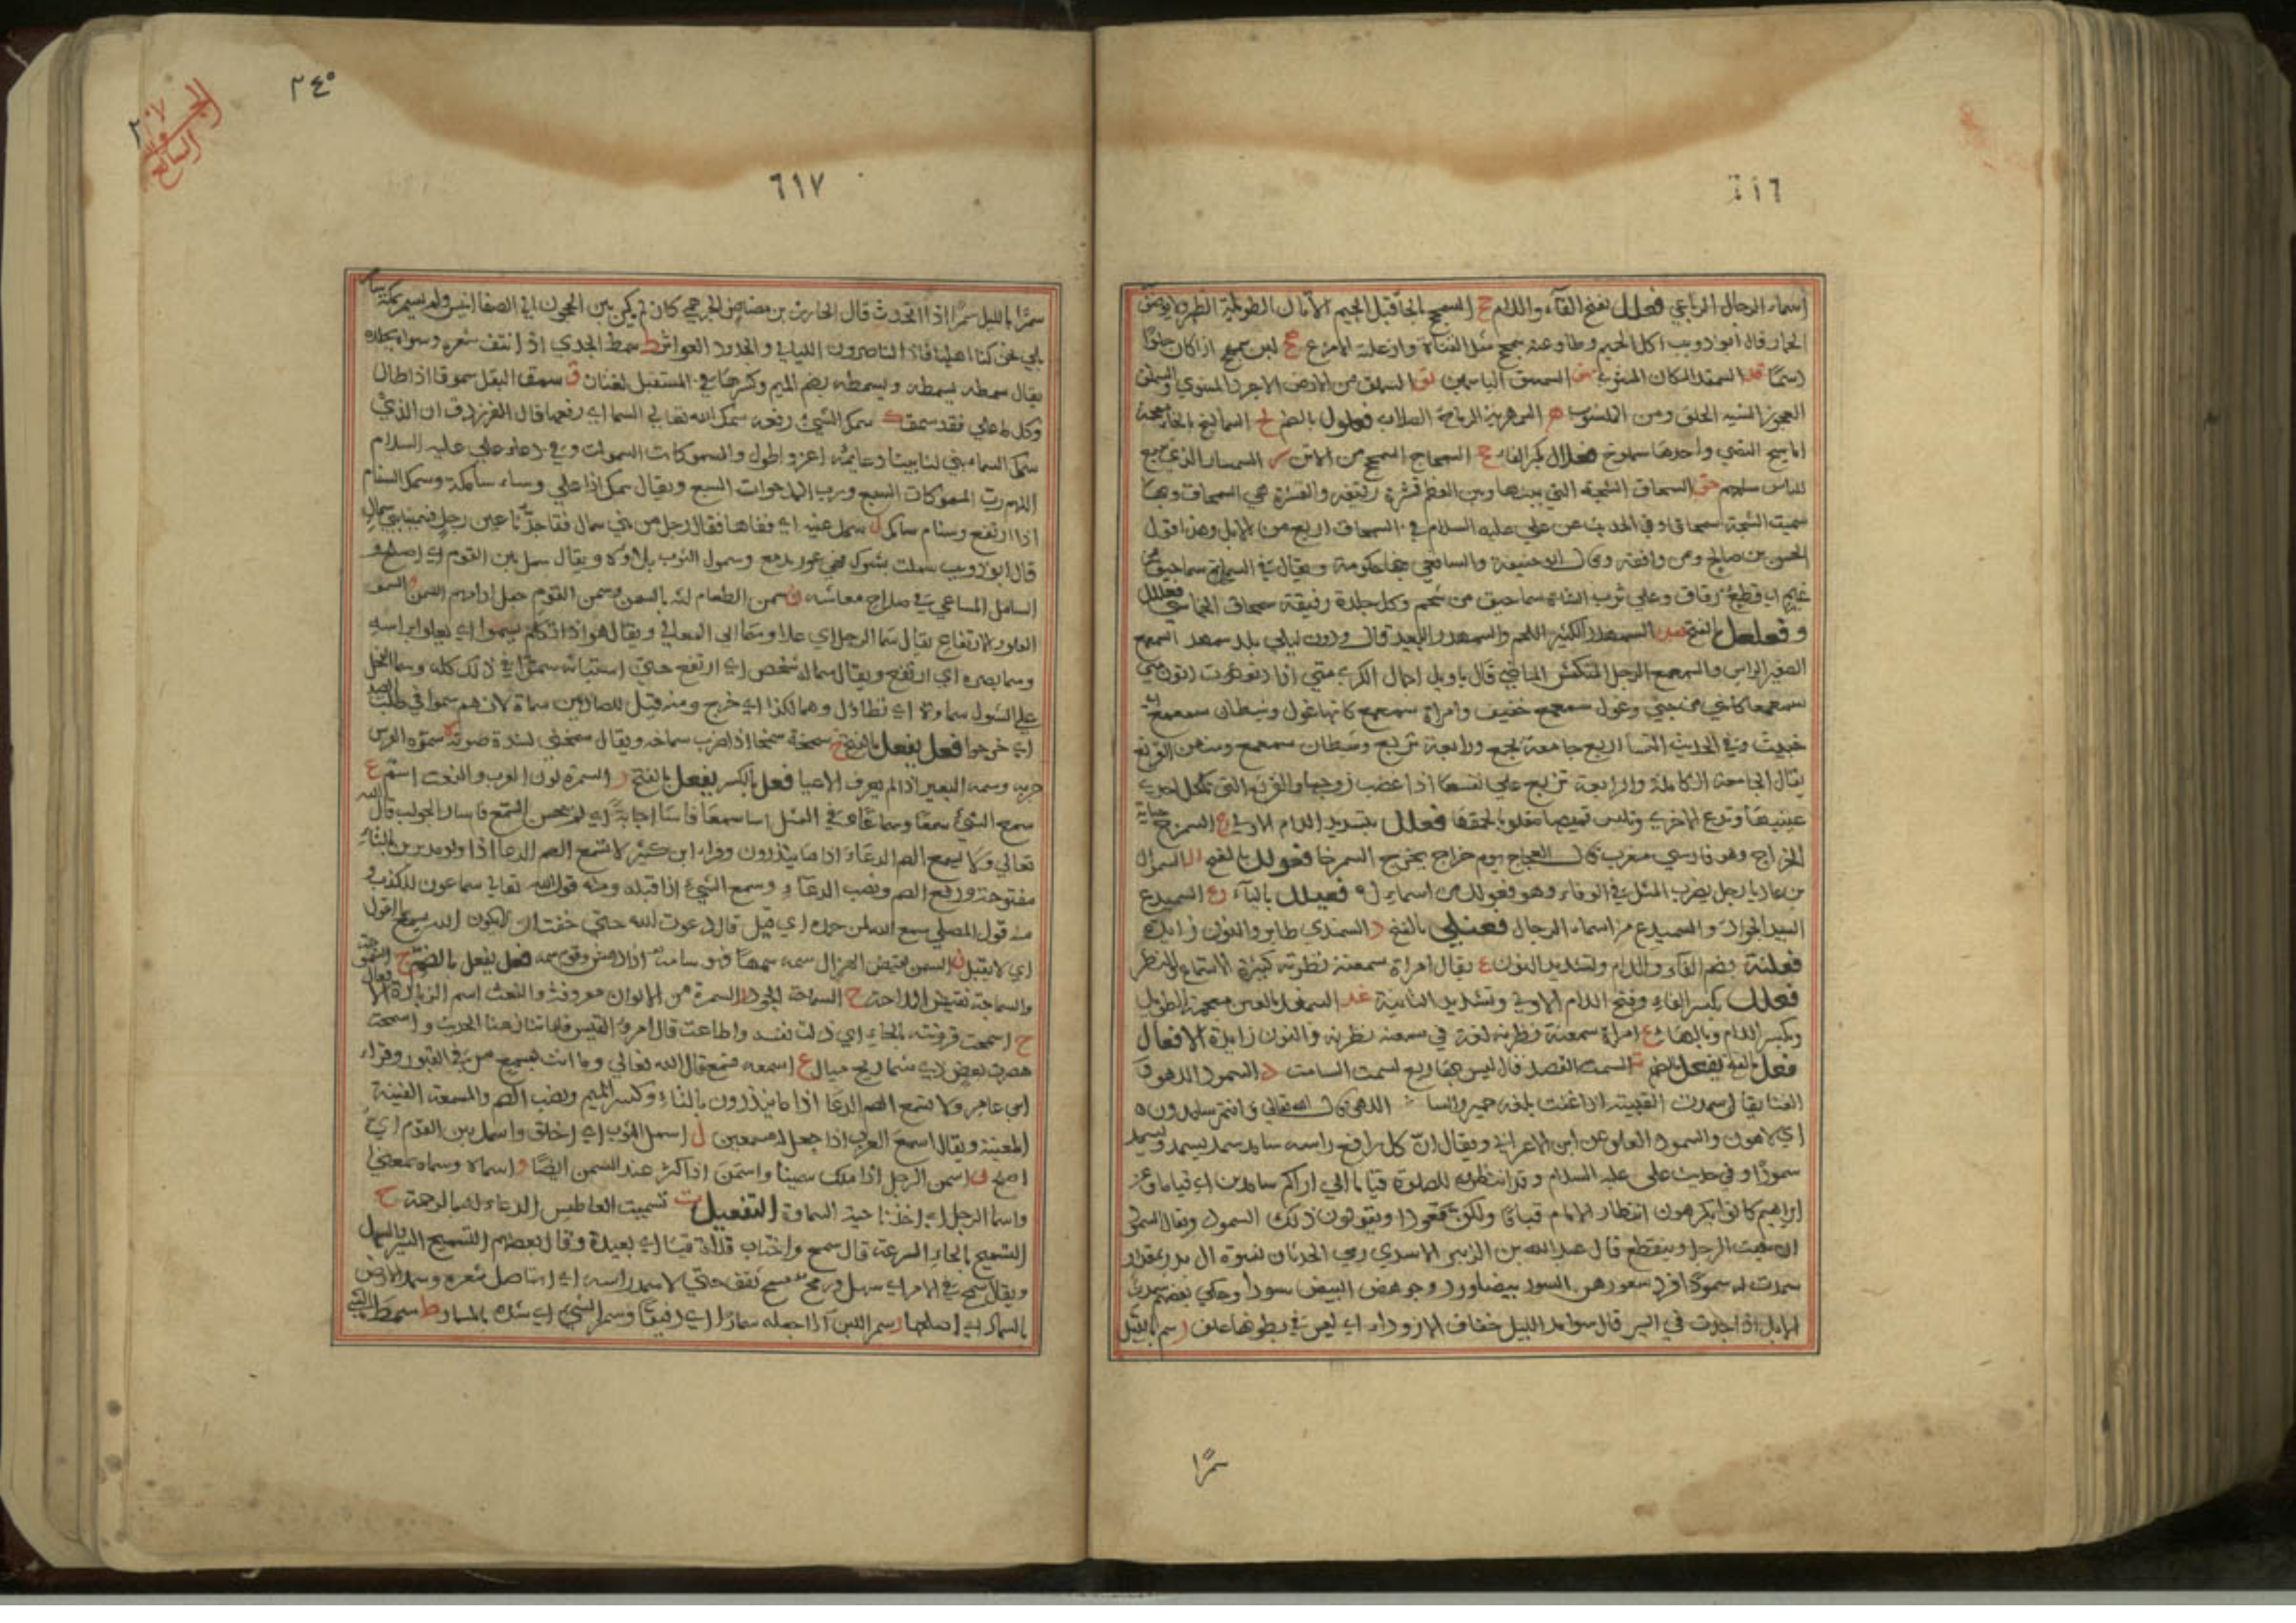 ٦١٦
اسماء الرجال الرباعي فعلل بفتح الفاء واللام ج السمحج الحا قبل الجيم الأتان الطويلة الظهر ولا يوصف
الحمار قال ابو ذويب اكل الجميم وطاوعته سمحج مثل القناة وازعلته الامرع لبن سمهج اذا كان حلوًا
دسمًا السملق من الارض الاجرد المستوي والسملق
العجوز السيئة الخلق ومن المنسوب هر السمهرية الرماح الصلاب فعلول بالضم خ السماليخ بالخاء معجمة
اماسيخ النصي واحدها سملوخ فعلال بكسر الفاء ج السمحاج السمحج من الاتن ر السمسار الذي يبيع
للناس سلعهم حق السمحاق الشجة التي بينها وبين العظم قشرة رقيقة والقشرة هي السمحاق وبها
سميت الشجة سمحاقا وفي الحديث عن علي عليه السلام في السمحاق اربع من الابل وهذا قول
الحسن بن صالح ومن وافقه وقال ابو حنيفة والشافعي فيها حكومة ويقال في السماء سماحيق من
غيم اي قطع رقاق وعلى ثرب الشاة سماحيق من شحم وكل جلدة رقيقة سمحاق الخماسي فعلل
و فعلعل بالفتح السمهدر الكثير اللحم والسمهدر البعيد قال ودون ليلى بلد سمهدر السمعمع
الصغير الراس والسمعمع الرجل المنكمش الماضي قال ياويل اجمال الكري مني اذا دنوت او دنون مني
سمعمعا كانني من جني وغول سمعمع خفيف وامراة سمعمع كانها غول وشيطان سمعمع اي
خبيث وفي الحديث النسا اربع جامعة تجمع ورابعة تربع وشيطان سمعمع ومنهن القرثع
يقال الجامعة الكاملة والرابعة تربع على نفسها اذا غضب زوجها والقرثع التي تكحل احدى
عينيها وتدع الاخرى وتلبس قميصها مقلوبا لحمقها فعلل بتشديد اللام الاولى ج السمرج جباية
الخراج وهو فارسي معرب قال العجاج يوم خراج يخرج السمرجا فعولل بالفتح ل السموال
بن عاديا رجل يضرب المثل في الوفاء وهو فعولل من اسماء فعيلل بالياء ع السميدع
السيد الجواد والسميدع من اسماء الرجال فعنلى بالفتح د السمندي طاير والنون زايدة
فعلنة بضم الفاء واللام وتشديد النون ع يقال امراة سمعنة نظرنة كثيرة الاستماع والنظر
فعلل بكسر الفاء وفتح اللام الاولى وتشديد الثانية غد السمغد بالغين معجمة الطويل
وبكسر اللام وبالهاء ع امراة سمعنة نظرنة لغة في سمعنة نظرنة والنون زايدة الافعال
فعل بالفتح يفعل بالضم ت السمت القصد قال ليس بها ريع لسمت السامت د السمود اللهو و
الغنا يقال سمدت القينة اذا غنت بلغة حمير والسامد اللاهي قال الله تعالى وانتم سامدون
اي لاهون والسمود العلو عن ابن الاعرابي ويقال ان كل رافع راسه سامد سمد يسمد ويسمد
سمودًا وفي حديث علي عليه السلام وقد انتظروه للصلوة قياما ما لي اراكم سامدين اي قياما وعن
ابراهيم كانوا يكرهون انتظار الامام قياما ولكن قعودا ويقولون ذلك السمود ويقال السمود
ان يبهت الرجل وينقطع قال عبد الله بن الزبير الاسدي رمى الحدثان نسوة ال بمقدار
سمدن له سمودًا فرد شعورهن السود بيضا ورد وجوههن البيض سودا وحكى بعضهم سمدت
الابل اذا جدت في السير قال سوامد الليل خفاف الازواد اي ليس في بطونها علف ر سمر بالليل
سمرًا
٢٤٥
الجزو
السابع
٦١٧
سمرًا بالليل سمرا اذا تحدث قال الحارث بن مضاض الجرهمي كان لم يكن بين الحجون الى الصفا انيس ولم يسمر بمكة سامر
بلى نحن كنا اهلها فازالنا صروف الليالي والجدود العواثر ط سمط الجدي اذا نتف شعره وشواه بجلده
يقال سمطه يسمطه ويسمطه بضم الميم وكسرها في المستقبل لغتان ق سمق البقل سموقا اذا طال
وكل طال فقد سمق ك سمك الشيء رفعه سمك الله تعالى السما اي رفعها قال الفرزدق ان الذي
سمك السماء بنى لنا بيتا دعايمه اعز واطول والمسموكات السموات وفي دعاء علي عليه السلام
اللهم رب المسموكات السبع ورب المدحوات السبع ويقال سمك اذا علا وسماء سامكة وسمك السنام
اذا ارتفع وسنام سامك ل سمل عينه اي فقاها فقال رجل من بني سمال فقا جدنا عين رجل فسمينا بني سمال
قال ابو ذويب سملت بشوك فهي عور تدمع وسمول الثوب بلاوه ويقال سمل بين القوم اي اصلح و
السامل الساعي في صلاح معاشه ن سمن الطعام لته بالسمن وسمن القوم جعل ادامهم السمن و السمو
العلو والارتفاع يقال سما الرجل اي علا وسما الى المعالي ويقال هو اذا تكلم يسمو اي يعلو براسه
وسما بصره اي ارتفع ويقال سما له شخص اي ارتفع حتى استبانه سموا في ذلك كله وسما الفحل
على الشول سماوة اي تطاول وسما لكذا اي خرج ومنه قيل للصيادين سماة لانهم سموا في طلب الصيد
اي خرجوا فعل يفعل بالفتح خ سمخه سمخا اذا ضرب سماخه ويقال سمخني لشدة صوته ه سموه الفرس
جريه وسمه البعير اذا لم يعرف الاعيا فعل بالكسر يفعل بالفتح ر السمرة لون العرب والنعت اسمر ع
سمع الشيء سمعًا وسماعًا وفي المثل اسا سمعا فاسا اجابة اي لم يحسن السمع فاسا الجواب قال الله
تعالى ولا يسمع الصم الدعاء اذا ما ينذرون وقراء ابن كثير لا تسمع الصم الدعا اذا ولوا مدبرين بالتاء
مفتوحة ورفع الصم ونصب الدعاء وسمع الشيء اذا قبله ومنه قول الله تعالى سماعون للكذب و
منه قول المصلي سمع الله لمن حمده اي قبل قال دعوت الله حتى خفت ان لا يكون الله يسمع ما اقول
اي لا يقبل ن السمن نقيض الهزال سمه سمها فهو سامه اذا دهش وقوم سمه فعل يفعل بالضم ج السمج
والسماجة نقيض الملاحة ح السماحة الجود ر السمرة من الالوان معروفة والنعت اسمر الزيادة الافعال
ح اسمحت قرونته بالحاء اي ذلت نفسه واطاعت قال امرؤ القيس فلما تنازعنا الحديث واسمحت
هصرت بغصن ذي شماريخ ميال ع اسمعه فسمع قال الله تعالى وما انت بمسمع من في القبور وقراء
ابن عامر ولا تسمع الصم الدعا اذا ما ينذرون بالتاء وكسر الميم ونصب الصم والمسمعة القينة
المغنية ويقال اسمع الغرب اذا جعل له مسمعين ل اسمل الثوب اي اخلق واسمل بين القوم اي
اصلح ن اسمن الرجل اذا ملك سمينا واسمن اذا كثر عنده السمن ايضًا و اسماه وسماه بمعنى
واسما الرجل اي اخذ ناحية السماوة التفعيل ت تسميت العاطس الدعاء له بالرحمة ح
التسميح بالحاء السرعة قال سمح واجتاب فلاة قيا اي بعيدة وقال بعضهم التسميح السير السهل
ويقال سمح في الامر اي سهل ورمح مسمح ثقف حتى لا سمد راسه اي استاصل شعره وسمد الارض
بالسماد اي اصلحها ر سمر اللبن اذا جعله سمارًا اي رقيقًا وسمر الشيء اي شده بالمسمار ط سمط الشيء